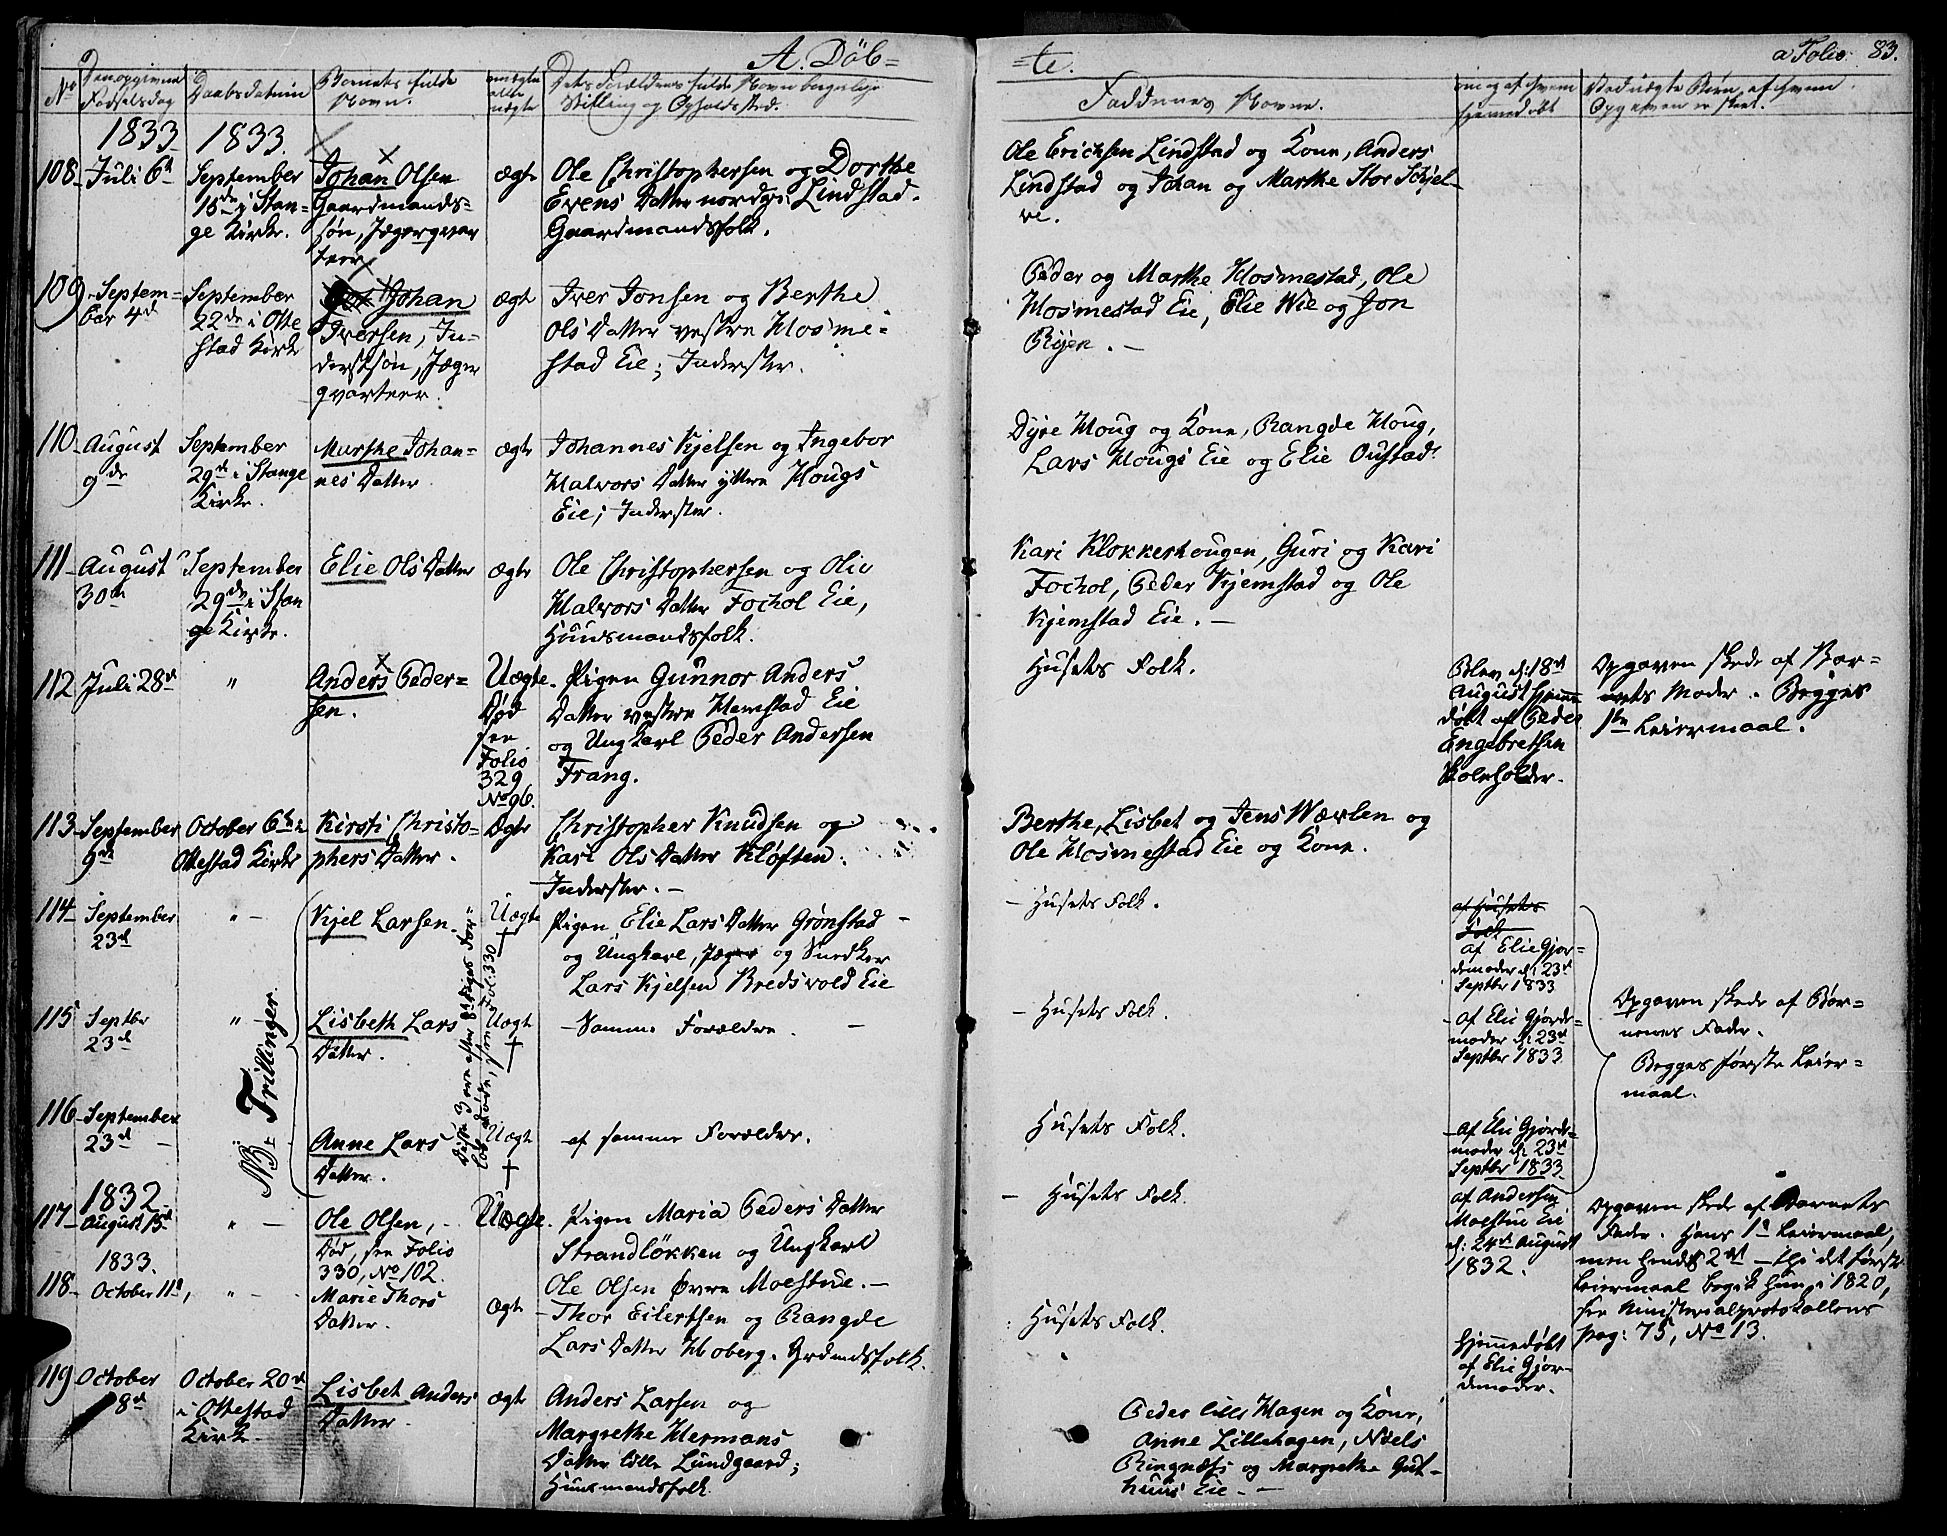 A. Döb=
=te.
a Folio. 83.
No
Den opgivne
Fødselsdag
Daabsdatum
Barnets fulde
Navn.
ægte
eller
uægte
Dets Forældres fulde Navn
Stilling og Opholdssted.
Faddernes Navne.
om og af hvem
hjemmedøbt
Ved uægte Børn, af hvem
Opgaven er skeet.
1833
1833.
108
Juli 6te
September
15de i Stan=
ge Kirke.
Johan Olsen
Gaardmands=
søn, Jægerqvar
teer
ægte
Ole Christophersen og Dorthe
Evens Datter nordgr: Lindstad.
Gaardmandsfolk.
Ole Erichsen Lindstad og Kone, Anders
Lindstad og Johan og Marthe Stor Schjel
ve.
109
Septem=
ber 4de
September
22de i Otte
stad Kirke
Johan
Iversen, In=
derstsøn, Jæger
qvarteer.
ægte
Iver Jonsen og Berthe
Ols Datter vestre Hosme=
stad Eie; Inderster.
Peder og Marthe Hosmestad, Ole
Hosmestad Eie, Elie Wie og Jon
Rijen. —
110
August
9de
September
29de i Stange
Kirke.
Marthe Johan=
nes Datter
ægte
Johannes Kjelsen og Ingebor
Halvors Datter yttre Hougs
Eie; Inderster.
Dyre Houg og Kone, Rangde Houg,
Lars Hougs Eie og Elie Oustad.
111
August
30te
September
29de i Stan
ge Kirke.
Elie Ols Datter
ægte
Ole Christophersen og Olie
Halvors Datter Fochol Eie,
Huusmandsfolk.
Kari Klokkerhougen, Guri og Kari
Fochol, Peder Kjemstad og Ole
Kjemstad Eie. —
112
Juli 28de
"
Anders Peder=
sen.
Uægte.
Død
see
Folio
329
No 96.
Pigen Gunnor Anders
Datter vestre Hemstad Eie
og Ungkarl Peder Andersen
Frang.
Husets Folk.
Blev d: 18de
August hjemme
døbt af Peder
Engebretsen
Skoleholder.
Opgaven skede af Bar=
nets Moder. Begges
1ste Leiermaal.
113
September
9de
October 6te i
Ottestad Kirke
Kirsti Christo=
phers Datter.
Ægte
Christopher Knudsen og
Kari Ols Datter Kløften.
Inderster. —
Berthe, Lisbet og Jens Wæxlen og
Ole Hosmestad Eie og Kone.
114
September
23de
" —
Kjel Larsen.
Uægte
†
Pigen Elie Lars Datter Grønstad
og Ungkarl, Jæger og Snedker
Lars Kjelsen Bredsvold Eie
— Husets Folk.
af Husets
Folk
af Elie Gjor=
demoder d: 23de
Septbr 1833
NB. Trillinger.
Disse 3 ere efter 8te Dages For=
løb døde, see Fol: 330
115
Septbr
23de
" —
Lisbeth Lars
Datter.
Uægte
†
— Samme Forældre. —
— Husets Folk.
af Elie Gjorde=
moder d: 23de
Septbr 1833
Opgaven skede af Bør=
nenes Fader.
Begges første Leier=
maal.
116
September
23de —
Anne Lars
Datter.
Uægte
†
af samme Forældre.
Husets Folk.
af Elie Gjorde=
moder d: 23de
Septbr 1833
1832
117
August 15de
" —
Ole Olsen,
Død, see Folio
330, No 102.
Uægte.
Pigen Maria Peders Datter
Strandløkken og Ungkarl
Ole Olsen Øvre Moestue. —
— Husets Folk.
af Andersen
Moestue Eie
d: 24de August
1832.
Opgaven skede af Barnets
Fader. Hans 1ste Leiermaal,
men hendes 2det — thi det første
Leiermaal begik hun i 1820,
see Ministerialprotokollens
pag: 75, No 13.
1833.
118
October 11te,
" —
Marie Thors
Datter.
ægte
Thor Eilertsen og Rangde
Lars Datter Hoberg.
Husets Folk.
Hjemmedøbt
af Elie Gjor=
demoder.
119
October
8de
October 20de
i Ottestad
Kirke.
Lisbet Anders
Datter.
ægte
Anders Larsen og
Margrethe Hermans
Datter lille Lundgaard;
Huusmandsfolk.
Peder lille Hagen og Kone,
Anne Lillehagen, Niels
Ringnæss og Margrethe Gut=
huus Eie. —